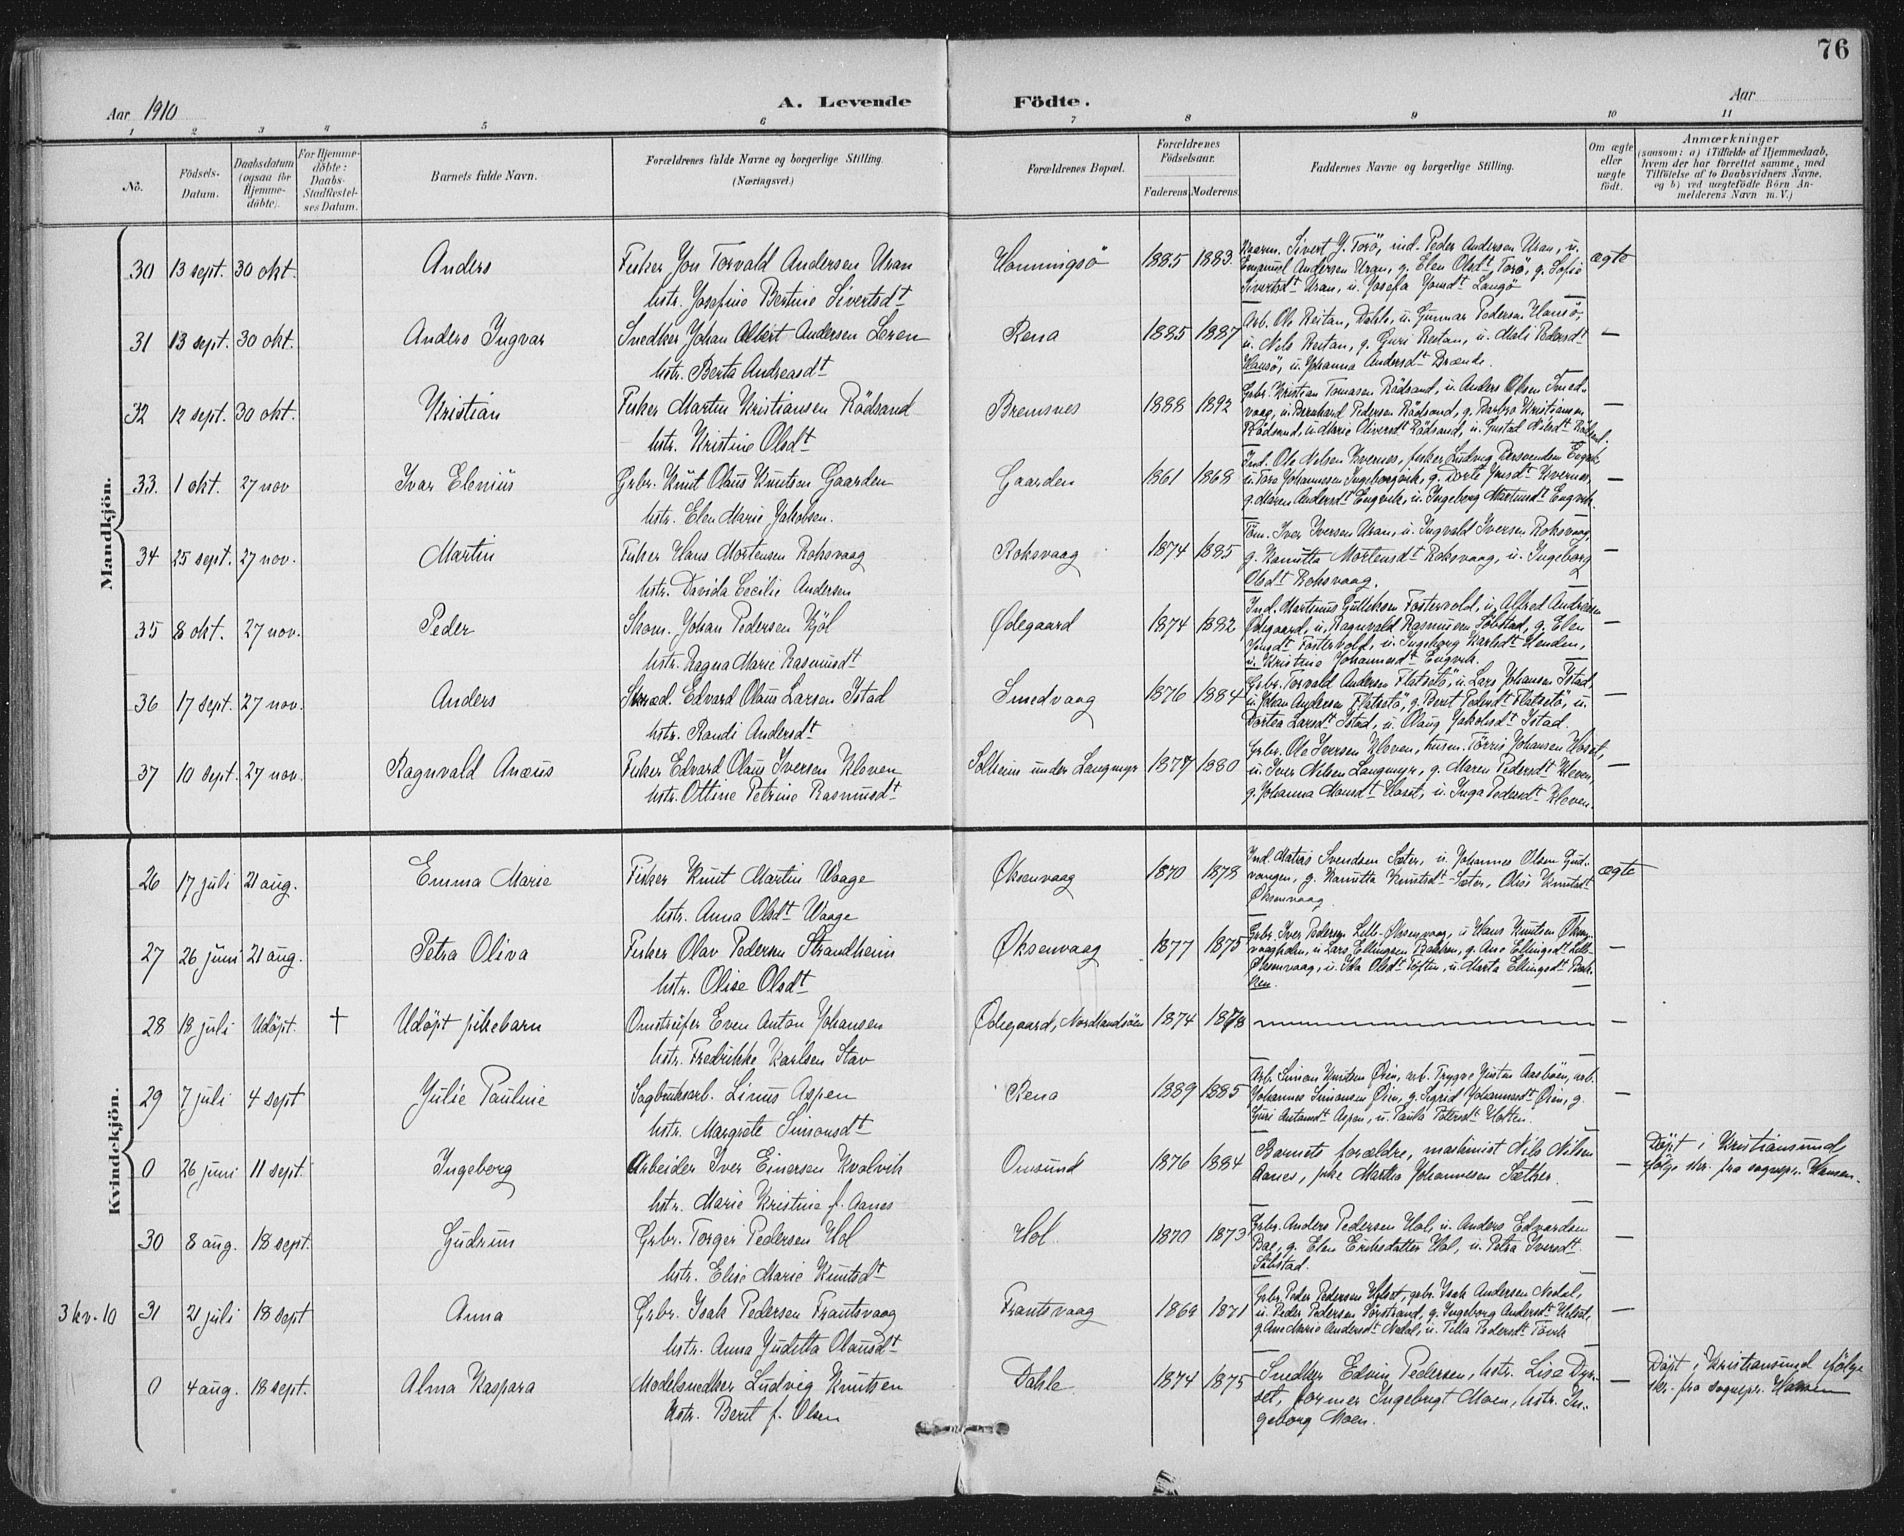 76
Aar 1910
A. Levende Födte.
Aar
1 2 3 4 5 6 7 8 9 10 11
No.
Födsels-Datum.
Daabsdatum (ogsaa for Hjemme-döbte).
For Hjemme-döbte: Daabs-Stadfæstel-ses Datum.
Barnets fulde Navn.
Forældrenes fulde Navne og borgerlige Stilling. (Næringsvei.)
Forældrenes Bopæl.
Forældrenes Födselsaar.
Faderens Moderens.
Faddernes Navne og borgerlige Stilling.
Om ægte eller uægte födt.
Anmærkninger
(saasom: a) i Tilfælde af Hjemmedaab, hvem der har forrettet samme, med Tilföielse af to Daabsvidners Navne, og b) ved uægtefödte Börn An-melderens Navn m. V.)
Mandkjön.
30 13 sept. 30 okt. Anders
Fisker Jon Torvald Andersen Uran
hstr. Josefine Bertine Sivertsdt
Honningsö 1885 1883
Sivert J. Torö, ind. Peder Andersen Uran, u.
Emanuel Andersen Uran, g. Elen Olsdt Torö, g. Sofie
Sivertsdt Uran, u. Josefa Jonsdt Langö
ægte
31 13 sept. 30 okt. Anders Ingvar
Snedker Johan Albert Andersen Leren
hstr. Berta Andreasdt
Rena 1885 1887
Arb. Ole Reitan, Dahle, u. Gunnar Pedersen Hansö,
u. Nels Reitan, g. Guri Reitan, u. Mali Pedersdt
Hansö, u. Johanna Andersdt Brænde.
—
32 12 sept. 30 okt. Kristian
Fisker Martin Kristiansen Rödsand
hstr. Kristine Olsdt
Bremsnes 1888 1892
Grbr. Kristian Tomasen Rödsand, u. Anders Olsen Smed-
vaag, u. Bernhard Pedersen Rödsand, g. Barbro Kristiansen
Rödsand, u. Marie Oliversdt Rödsand, u. Gustad Nilsdt Rödsand.
—
33. 1 okt. 27 nov Ivar Elenius
Grbr. Knut Olaus Knutsen Gaarden
hstr. Elen Marie Jakobsen.
Gaarden 1861 1868
Ind. Ole Nelsen Kvernes, fisker Ludvig Engvik
u. Tore Johannesen Ingeborgvik, g. Dorte Jonsdt Kvernes,
g. Maren Andersdt Engvik, u. Ingeborg Martinsdt Engvik.
—
34 25 sept. 27 nov. Martin
Fisker Hans Mortensen Roksvaag
hstr. Davida Cecilie Andersen
Roksvaag 1874 1885
Töm. Iver Iversen Uran, u. Ingvald Iversen Roksvaag
g. Kanutta Mortensdt Roksvaag, u. Ingeborg
Olsdt Roksvaag.
—
35 8 okt. 27 nov. Peder
Skom. Johan Pedersen Kjöl
hstr. Ragna Marie Rasmusdt
Ødegaard 1874 1882
Ind. Martinus Gulliksen Fostervold, u. Alfred Andresen
Ødegaard, u. Ragnvald Rasmusen Sobstad, g. Elen
Jonsdt Fostervold, u. Ingeborg Karlsdt Henden,
u. Kristine Johannesdt Engvik.
—
36 17 sept. 27 nov. Anders
Skræd. Edvard Olaus Larsen Istad
hstr. Randi Andersdt
Smedvaag 1876 1884
Grbr. Torvald Andersen Flatsetö, u. Lars Johansen Istad
u. Johan Andersen Flatsetö, g. Berit Pedersdt Flatsetö, u.
Dortea Larsdt Istad, u. Olaug Jakobsdt Istad.
—
37 10 sept. 27 nov. Ragnvald Anæus
Fisker Edvard Olaus Iversen Kloven
hstr. Ottine Petrine Rasmusdt
Solheim under Langmyr 1877 1880
Grbr. Ole Iversen Kloven, husm. Törris Johansen Hoset,
u. Iver Nelsen Langmyr, g. Maren Pedersdt Kloven,
g. Johanna Monsdt Hoset, u. Inga Pedersdt Kloven.
—
Kvindekjön.
26 17 juli 21 aug. Emma Marie
Fisker Knut Martin Waage
hstr. Anna Olsdt Waage
Øksenvaag 1870 1878
Ind. Matias Svendsen Sæter, u. Johannes Olsen Gud-
vangen, g. Kanutta Knutsdt Sæter, Olise Knutsdt
Øksenvaag
ægte
27 26 juni 21 aug. Petra Oliva
Fisker Olav Pedersen Strandheim
hstr. Olise Olsdt
Øksenvaag 1877 1875
Grbr. Iver Pedersen Lille-Øksenvaag, u. Hans Knutsen Øksen-
vaagholm, u. Lars Ellingsen Bakken, g. Ane Ellingsdt Lille-
Øksenvaag, u. Ida Olsdt Toften, u. Marta Ellingsdt Bak-
ken.
—
28 18 juli Udöpt † Udöpt pikebarn
Omstreifer Even Anton Johansen
hstr. Fredrikke Karlsen Stav
Ødegaard, Nordlandsöen 1874 1878
—
29 7 juli 4 sept Julie Pauline
Sagbruksarb. Linus Aspen
hstr. Margrete Simonsdt
Rena 1889 1885
Arb. Simon Knutsen Øien, arb. Trygve Justin Aasböen, arb.
Johannes Simonsen Øien, g. Sigrid Johannesdt Øien, g.
Guri Antonsdt Aspen, u. Paula Petersdt Hatten.
—
0 26 juni 11 sept. Ingeborg
Arbeider Iver Einersen Kvalvik
hstr. Marie Kristine f. Aanes
Omsund 1876 1884
Barnets forældre, maskinist Nils Nilsen
Aanes, pike Martha Johannesen Sæther.
—
Döpt i Kristiansund
ifölge skr. fra sognepr. Hansen.
30 8 aug. 18 sept. Gudrun
Grbr. Torger Pedersen Hol
hstr. Elise Marie Knutsdt
Hol. 1870 1873
Grbr. Anders Pedersen Hol, u. Anders Edvardsen
Bae, g. Elen Eriksdatter Hol, u. Petra Iversdt
Sobstad.
—
3 kv. 10
31 21 juli 18 sept Anna
Grbr. Isak Pedersen Frantsvaag
hstr. Anna Juditta Olausdt
Frantsvaag 1869 1871
Grbr. Peder Pedersen Ulset, grbr. Isak Andersen Nedal,
u. Peder Pedersen Sörstrand, g. Ingeborg Andersdt Ulset,
g. Ane Marie Andersdt Nedal, u. Tilla Pedersdt Tövik
—
0 4 aug. 18 sept. Alma Kaspara
Modelsnedker Ludvig Knutsen
hstr. Berit f. Olsen
Dahle. 1874 1875
Snedker Edvin Pedersen, hstr. Lise Dyr-
set, former Ingebrigt Moen, hstr. In-
geborg Moen.
—
Döpt i Kristiansund ifölge
skr. fra sognepr. Hansen